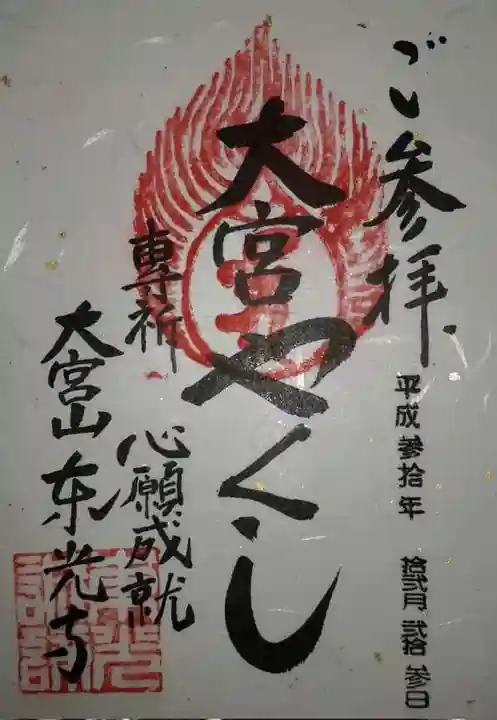 ごし参拝
平成参拾年 拾弐月弐拾参日
大宮やくし
専祈
心願成就
大宮山东光寺